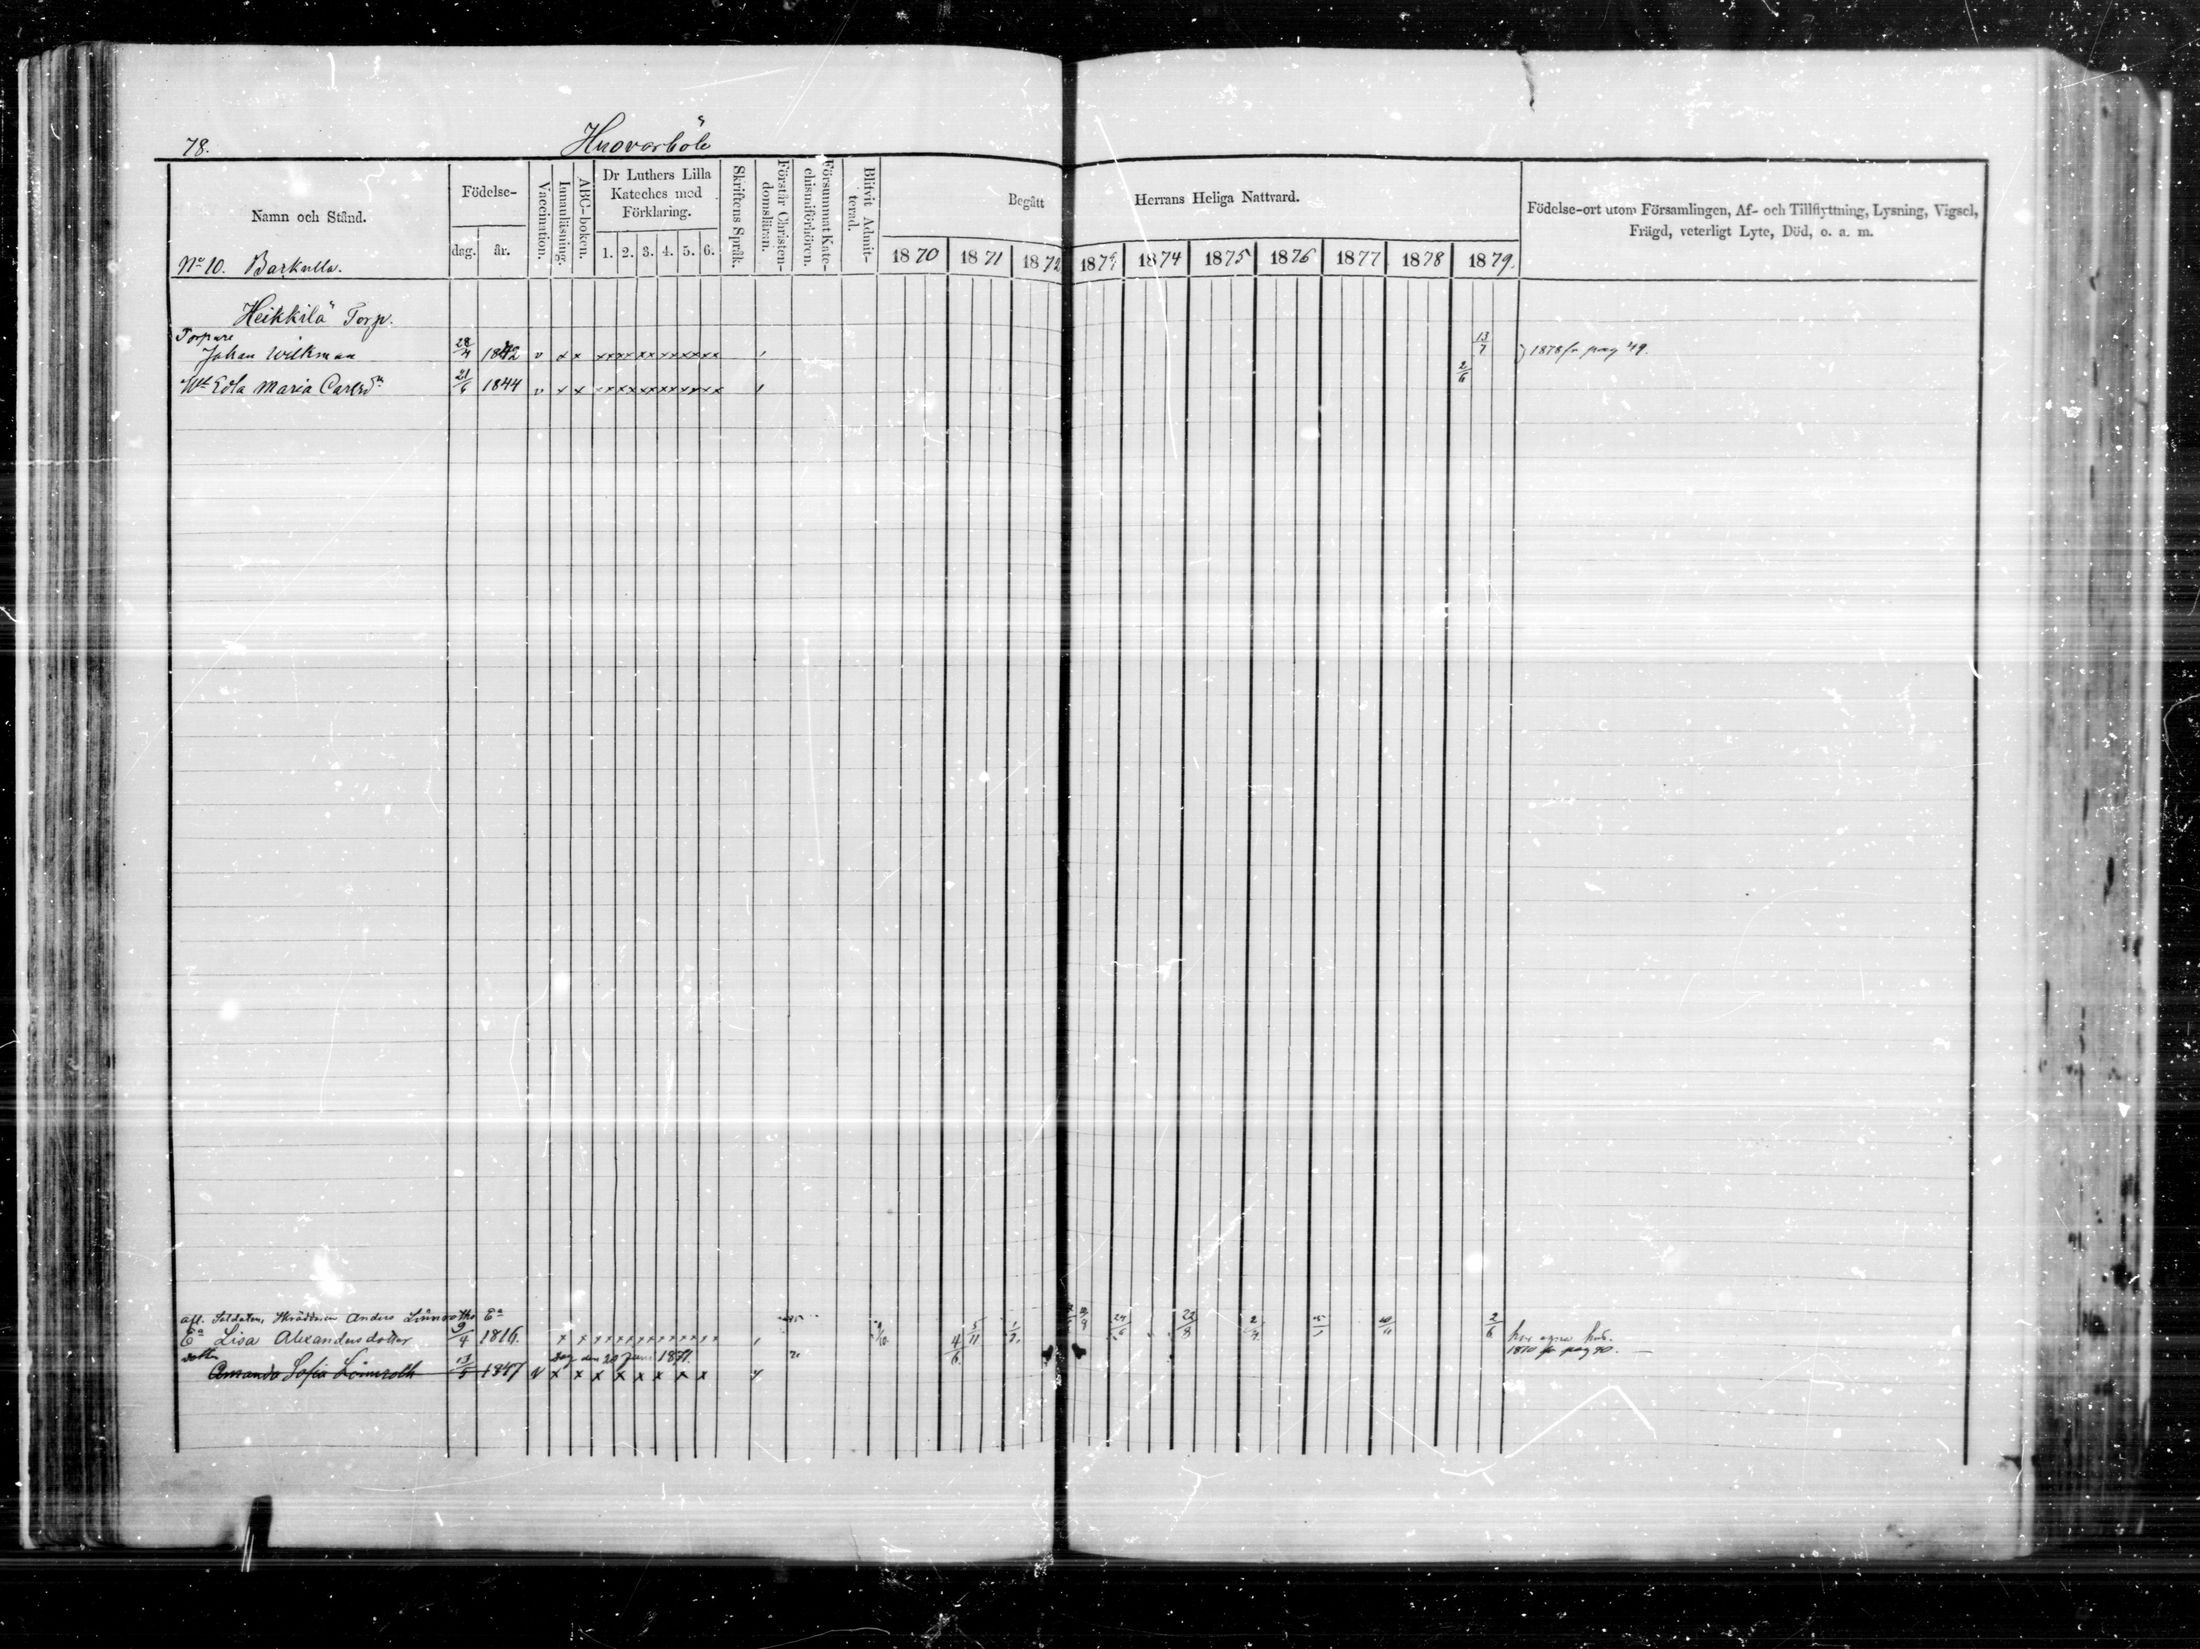 78.
Husvarböle
Namn och Stånd.
Födelse-
dag.
år.
Vaccination.
Innanläsning.
ABC-boken.
Dr Luthers Lilla
Kateches med
Förklaring.
1. 2. 3. 4. 5. 6.
Skriftens Språk.
Förstår Christen-
domsläran.
Försummat Kate-
chismiförhören.
Blifvit Admit-
terad.
Begått
Herrans Heliga Nattvard.
1870 1871 1872 1873 1874 1875 1876 1877 1878 1879.
Födelse-ort utom Församlingen, Af- och Tillflyttning, Lysning, Vigsel,
Frägd, veterligt Lyte, Död, o. a. m.
No 10. Barkulla.
Heikkilä Torp.
Torpare
Johan Wilkman 28/4 1842 v x x xxxxxxxxxxxx 13/7 1878 fr pag 49.
Ht Eda Maria Carlsdr 21/6 1844 v x x xxxxxxxxxxxx 2/6
afl. Soldaten, Skräddaren Anders Lönnroths Ea
Ea Lisa Alexandersdotter 9/4 1816. x x xxxxxxxxxxxx 5/11 22/8 2/6 har egna hus.
dotter 4/6 1870 fr pag 90.
Amanda Sofia Lönnroth 13/5 1847 v x x x x x x x x